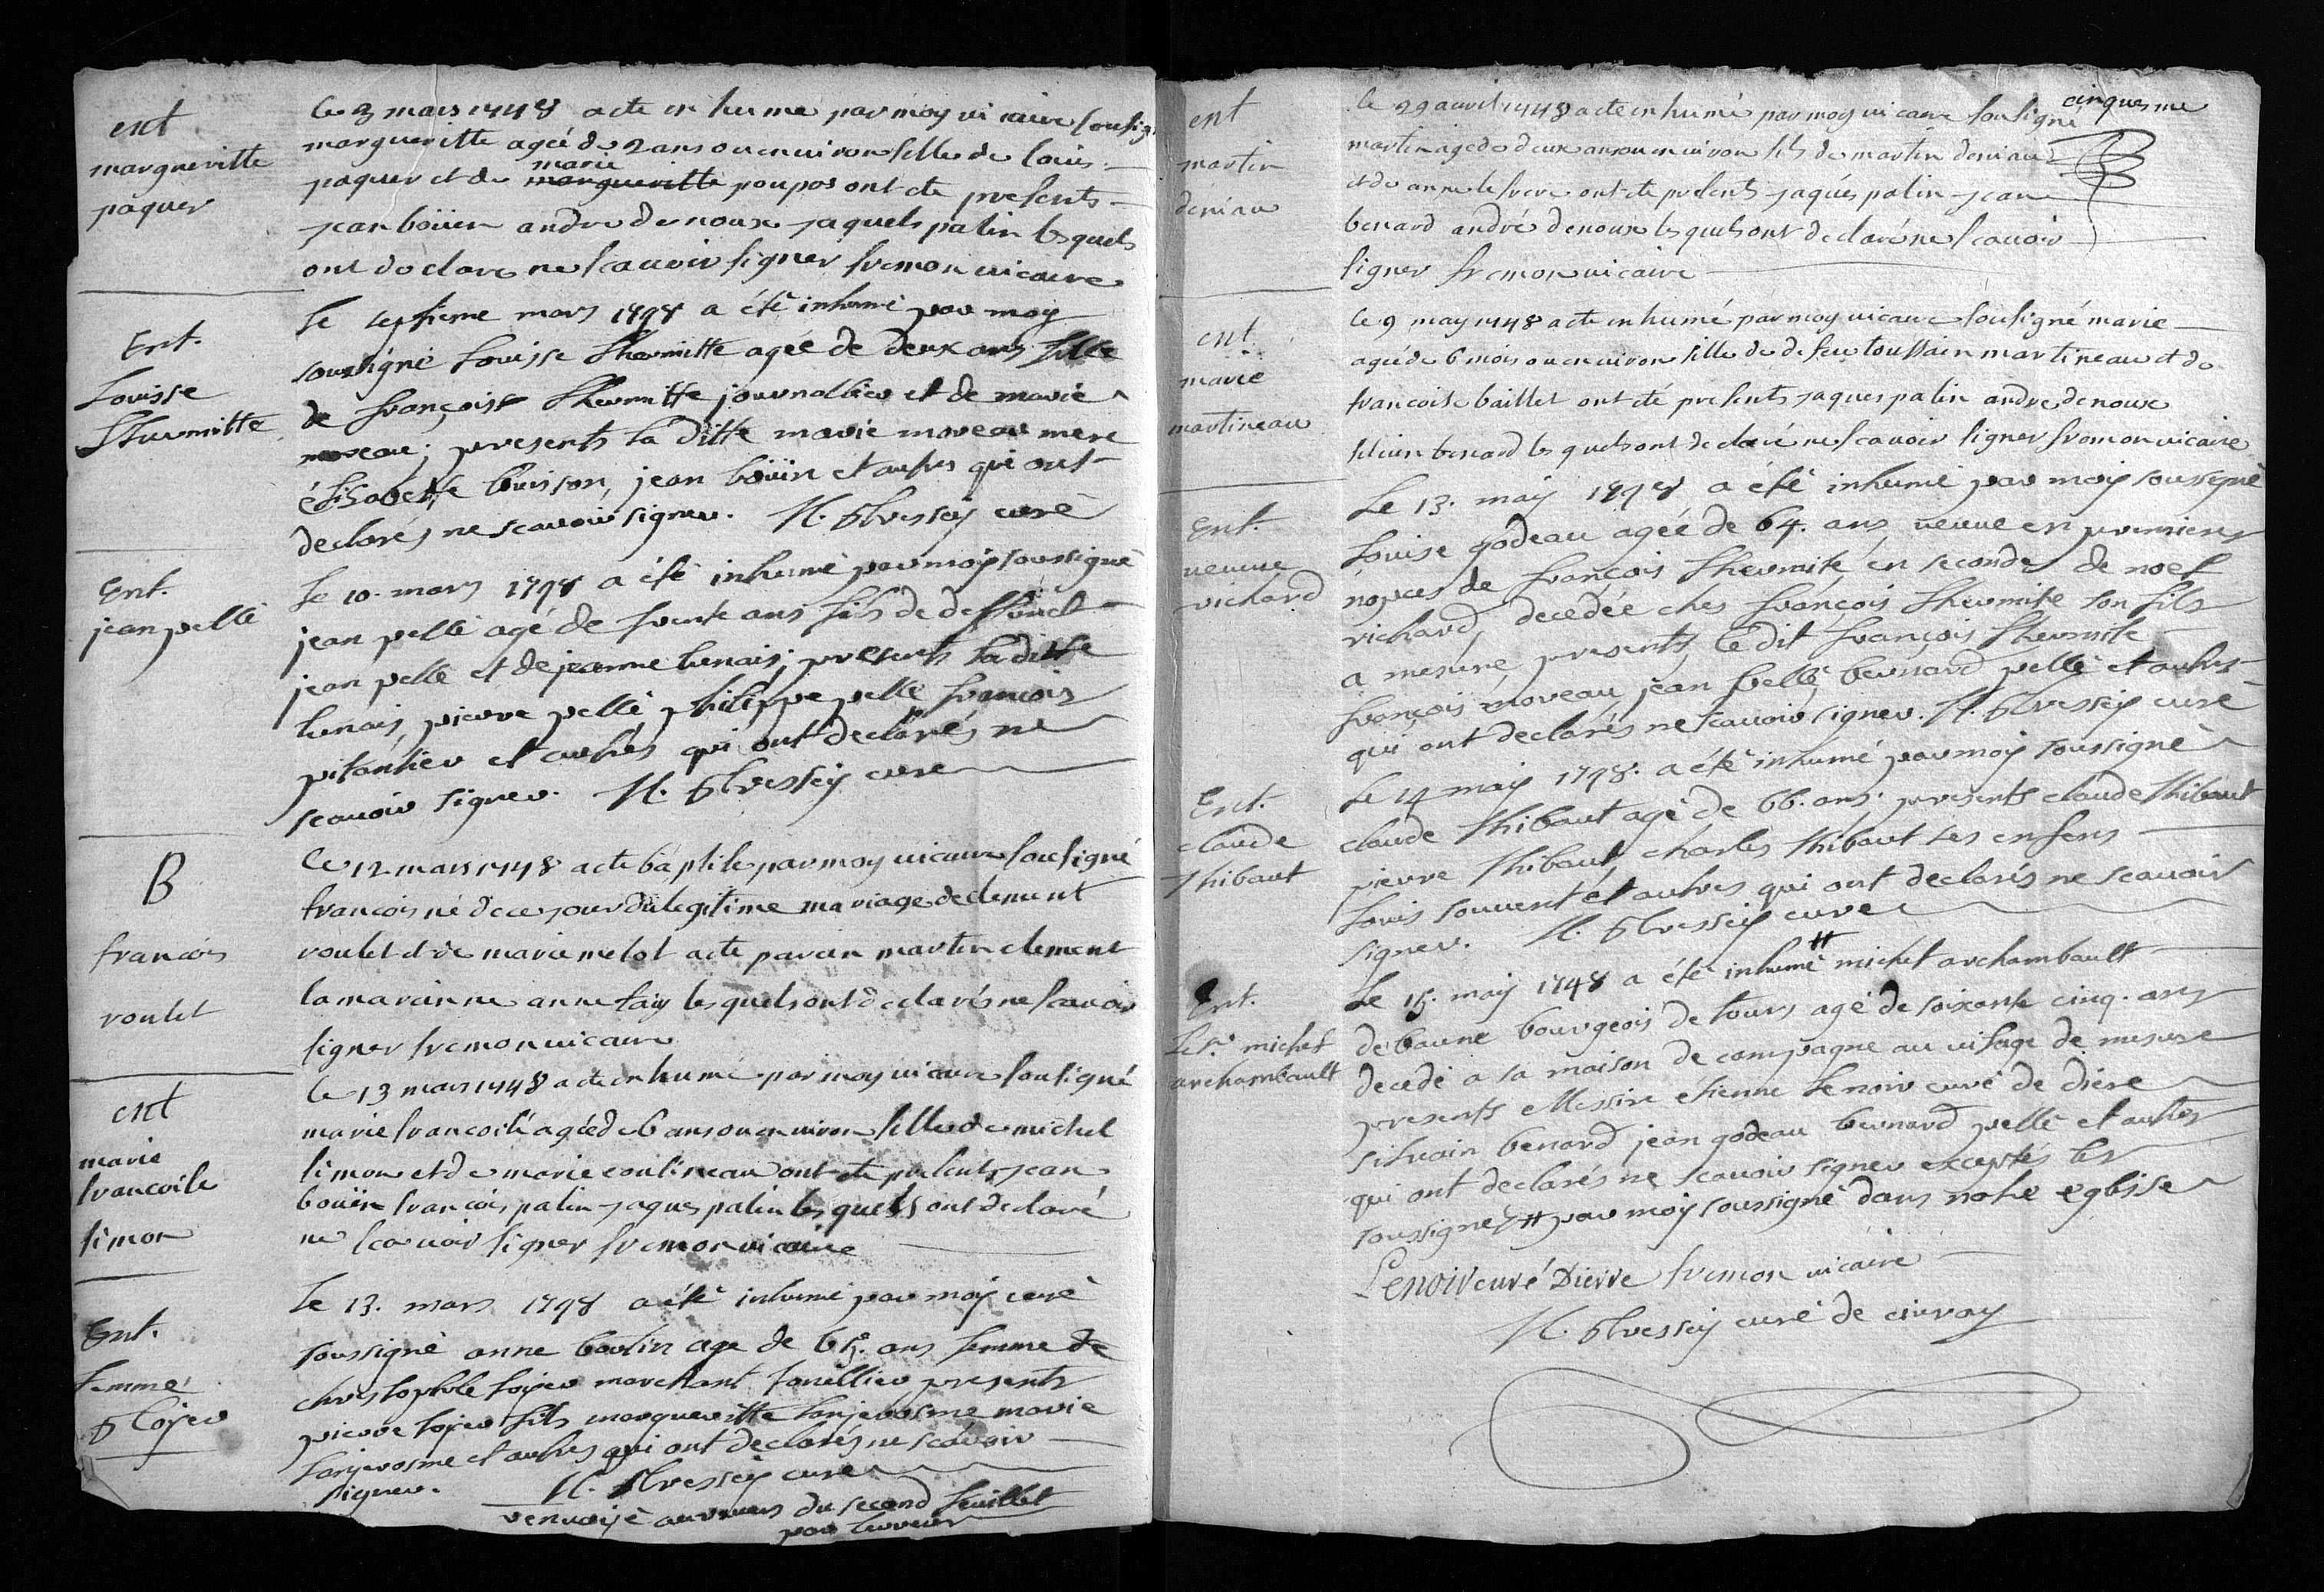 ent
margueritte
paquer
le 3 mars 1748 a ete in hume par moy vicaire sousig
margueritte ageé de 2 ans ou environ fille de louis
paquer et de marie margueritte poupos ont ete presents
jean boüin andre denoux jaquets palin lesquels
ont declare ne scauoir signer fremon uicaire
Ent.
Louisse
Lhermitte
le septieme mars 1748 a été inhumé par moy
soussigné Louisse Lhermitte ageé de deux ans fille
de françoisr Lhermitte journallier et de marie
moreau; presents la ditte marie moreau mere
élisabette buisson, jean boüin et autres qui ont
declarés ne scauoir signer. curé
Ent.
jean pellé
Le 10. mars 1748 a été inhumé par moy soussigné
jean pellé agé de trente ans fils de deffunct
jean pellé et de jeanne lunais; presents la ditte
lunais, pierre pellé philippe pellé françois
pitantier et autres qui ont declarés ne
scauoir signer. curé
B
francois
roulet
le 12 mars 1748 a ete baptise par moy uicaire sousigné
francois né de ce jour du legitime mariage de clement
roulet et de marie melot a ete parain martin clement
la maraine anne fay lesquels ont declarés ne scauoir
signer fremon uicaire
ent
marie
francoise
simon
le 13 mars 1748 a ete in humé par moy uicaire sousigné
marie francoise ageé de 6 ans ou environ fille de michel
simon et de marie coulineau ont ete presents jean
boüin francois palin jaques palin lesquels ont declaré
ne scauoir signer fremon uicaire
Ent.
femme
Loyer
Le 13. mars 1748 a été inhumé par moy curé
soussigné anne boulin age de 65. ans femme de
christophle loyer marchant presents
pierre loyer fils margueritte lanjerosme marie
lanjerosme et autres qui ont declarés ne scavoir
signer. curé
renuoyé au uerso du second feuillet
cinquesme
ent
martin
deniau
le 29 auril 1748 a ete in humé par moy uicaire sousigné
martin age de deux ans ou enuiron fils de martin deniau
et de anne lefreve ont ete presents jaques palin jean
benard andré denoux lesquels ont declaré ne scauoir
signer fremon uicaire
ent.
marie
martineau
le 9 may 1748 a ete in humé par moy uicaire sousigné marie
ageé de 6 mois ou enuiron fille de defeu toussain martineau et de
francoise baillet ont eté presents jaques palin andre denoux
siluin benard lesquels ont declaré ne scauoir signer fremon uicaire
Ent.
ueuue
richard
Le 13. may 1748 a été inhumé par moy soussigné
Louise godeau ageé de 64. ans, ueuue en premieres
nopces de françois Lhermite en secondes de noel
richard, decedée ches françois Lhermite son fils
a mesure, presents, le dit françois Lhermite
françois moreau, jean pellé, bernard pellé et autres
qui ont declarés ne scauoir signer. curé
Ent.
claude
Thibaut
Le 14 may 1748. a été inhumé par moy soussigné
claude Thibaut agé de 66. ans; presents claude Thibaut
pierre Thibaut, charles Thibaut ses enfens
Louis souuent et autres qui ont declarés ne scauoir
signer. curé
Ent.
Le Sr. michel
archambault
Le 15. may 1748 a été inhumé # michel archambault
de baune bourgeois de tours agé de soixante cinq. ans
decedé a sa maison de compagne au uilage de mesure
presents Messire étienne Lenoir curé de diere
siluain benard, jean godeau bernard pellé et autres
qui ont declarés ne scauoir signer exceptés les
soussignés # par moy soussigné dans notre eglisse
Lenoir curé Dierre fremon uicaire
curé de ciuray